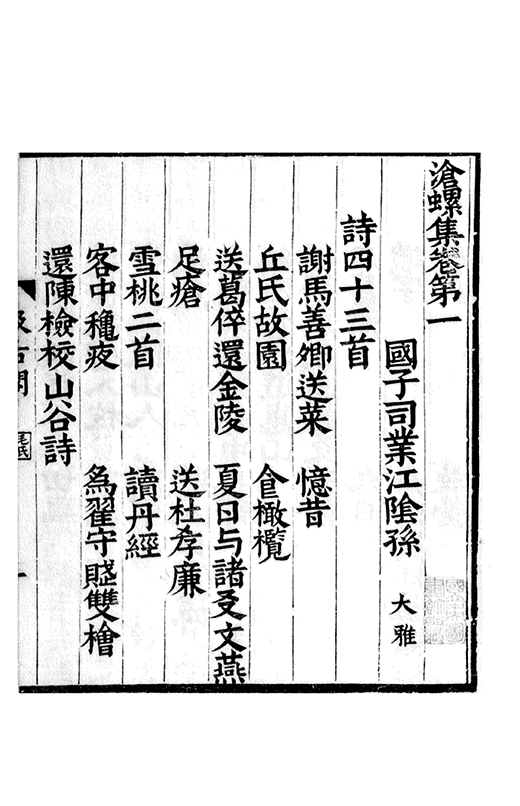 滄螺集卷第一
國子司業江陰孫 大雅
詩四十三首
謝馬善卿送菜 憶昔
丘氏故園 食橄欖
送葛倅還金陵 夏日与諸友文燕
足瘡 送杜孝廉
雪桃二首 讀丹經
客中穐夜 為翟守賦雙檜
還陳檢校山谷詩
一